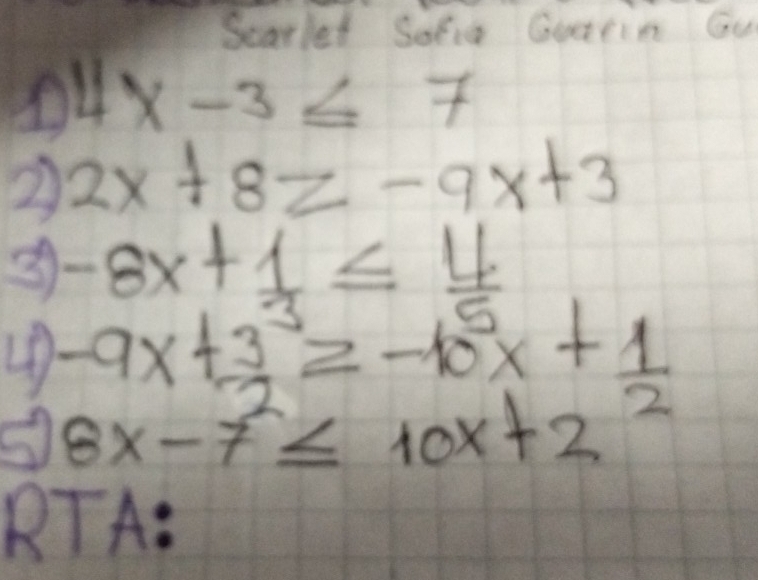 Scarlet Sofia Guarin
1) 4x - 3 ≤ 7
2) 2x + 8 ≥ -9x + 3
3) -8x + 1/3 ≤ 4/5
4) -9x + 3/2 ≥ -10x + 1/2
5) 8x - 7 ≤ 10x + 2
RTA: